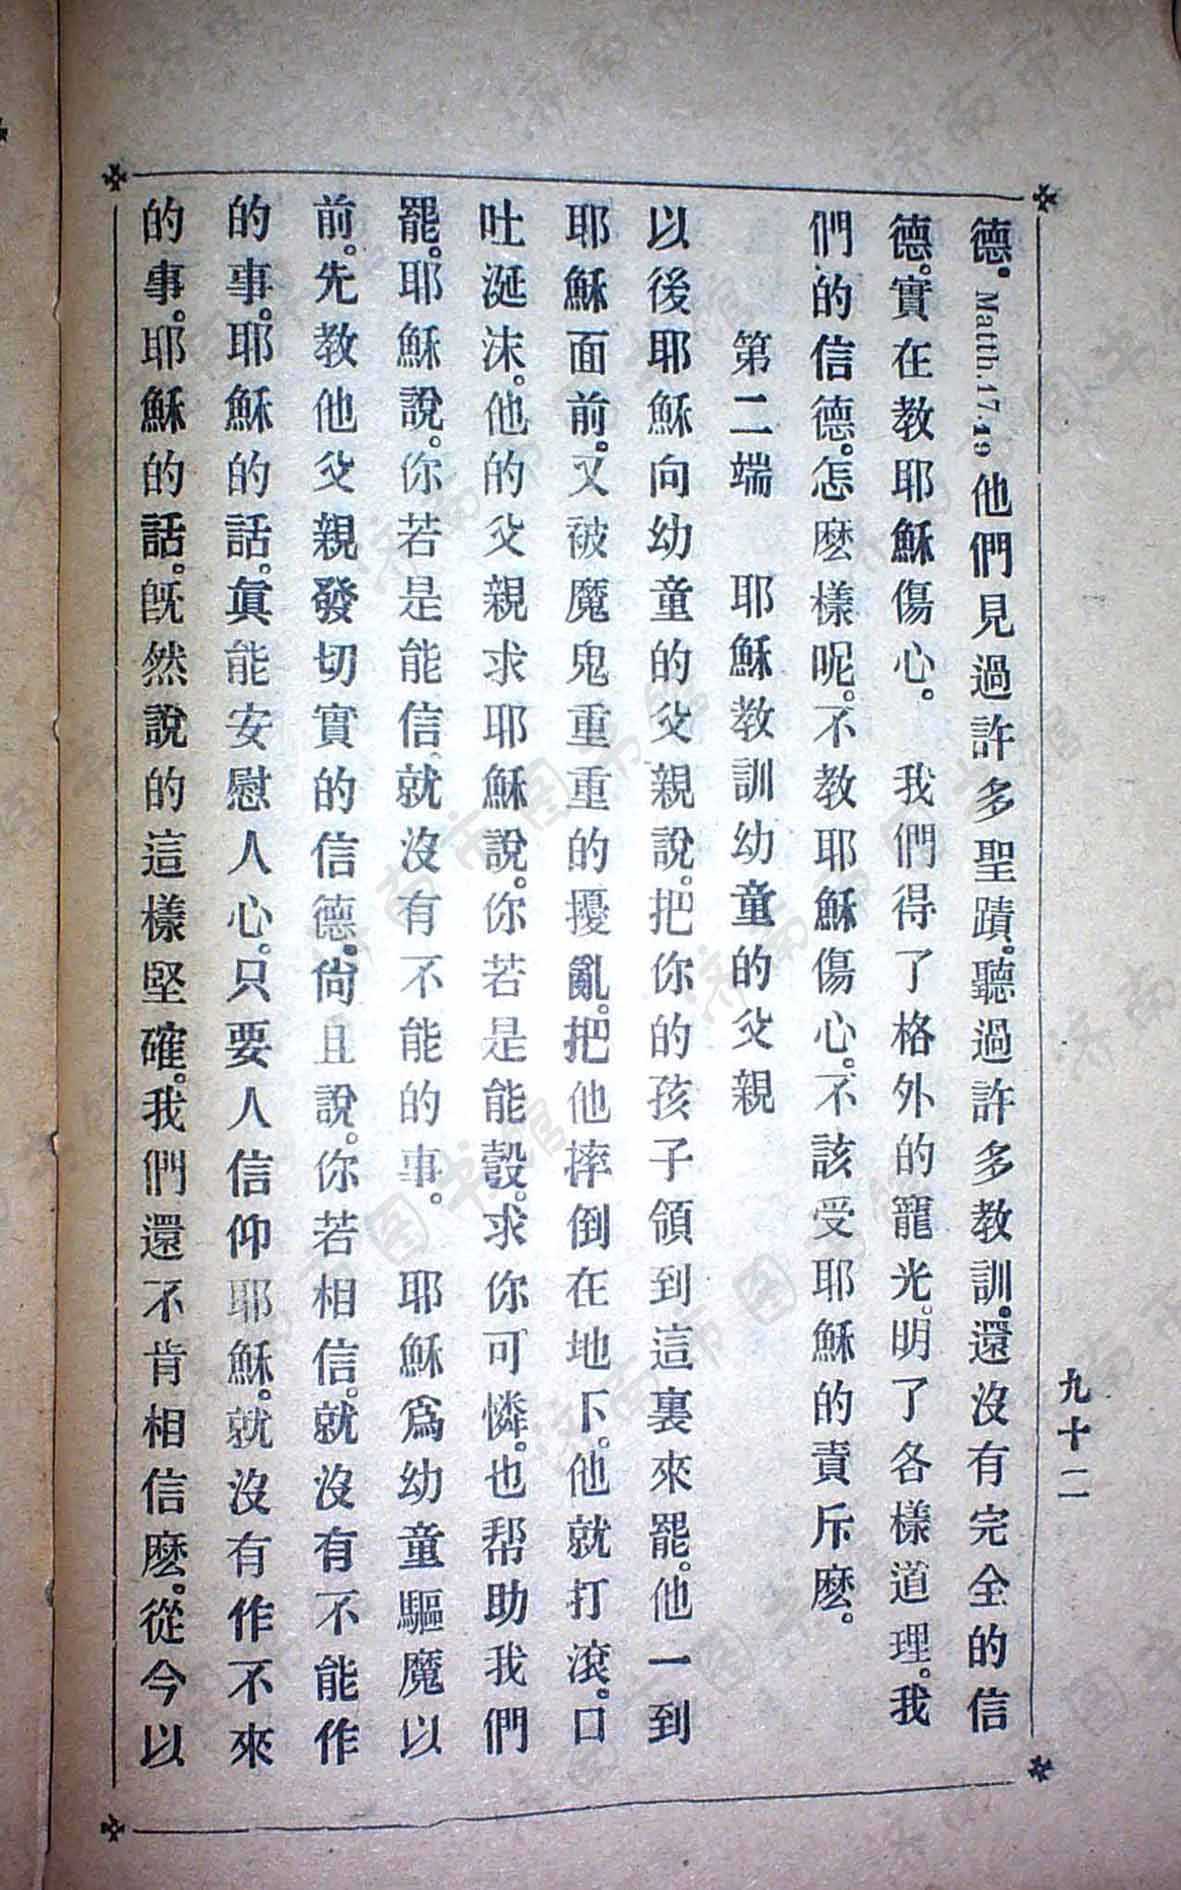 德。Matth.17.19他們見過許多聖蹟。聽過許多教訓。還沒有完全的信
德。實在教耶穌傷心。　我們得了格外的寵光。明了各樣道理。我
們的信德。怎麽樣呢。不教耶穌傷心。不該受耶穌的責斥麽。
第二端　耶穌教訓幼童的父親
以後耶穌向幼童的父親說。把你的孩子領到這裏來罷。他一到
耶穌面前。又被魔鬼重重的擾亂。把他摔倒在地下。他就打滾。口
吐涎沫。他的父親求耶穌說。你若是能彀。求你可憐。也帮助我們
罷。耶穌說。你若是能信。就沒有不能的事。　耶穌爲幼童驅魔以
前。先教他父親發切實的信德。尙且說。你若相信。就沒有不能作
的事。耶穌的話。眞能安慰人心。只要人信仰耶穌。就沒有作不來
的事。耶穌的話。旣然說的這樣堅確。我們還不肯相信麽。從今以
九十二
济南市图书馆